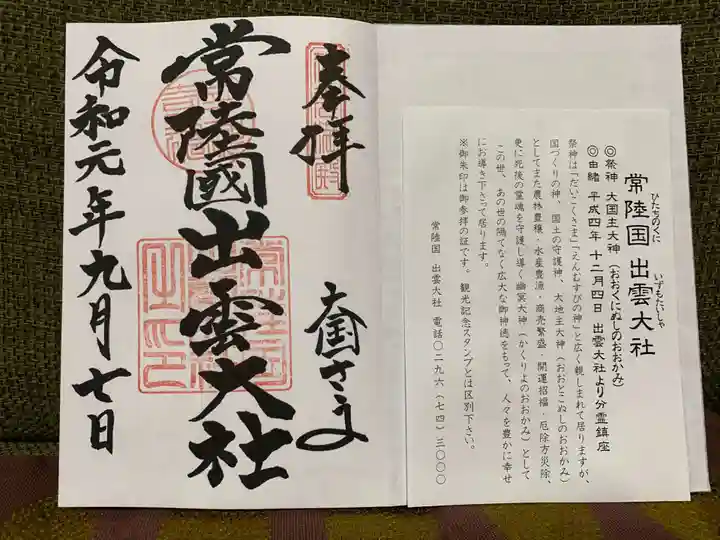 常陸国 出雲大社
ひたちのくに いずもたいしゃ
◎祭神 大国主大神(おおくにぬしのおおかみ)
◎由緒 平成四年 十二月四日 出雲大社より分霊鎮座
祭神は「だいこくさま」「えんむすびの神」と広く親しまれて居りますが、
国づくりの神、国土の守護神、大地主大神(おおとこぬしのおおかみ)
としてまた農林豊穣・水産豊漁・商売繁盛・開運招福・厄除方災除、
更に死後の霊魂を守護し導く幽冥大神(かくりよのおおかみ)として
この世、あの世の隔てなく広大な御神徳をもって、人々を豊かに幸せ
にお導き下さって居ります。
※御朱印は御参拝の証です。観光記念スタンプとは区別下さい。
常陸国 出雲大社 電話〇二九六(七四)三〇〇〇
奉拝
大国さま
常陸國出雲大社
令和元年九月七日